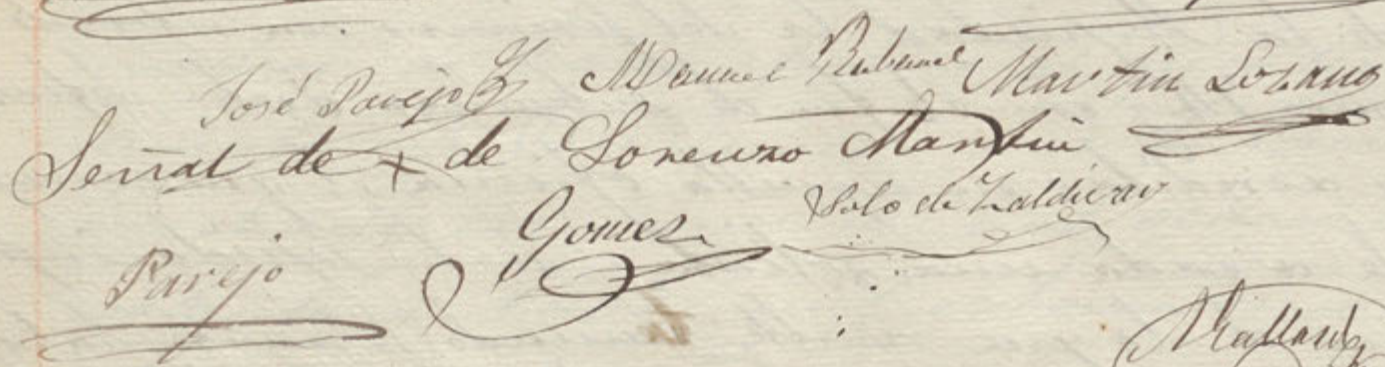 José Parejo y Manuel Rubemel Martin Lozano
Señal de + de Lorenzo Martin
Gomez Solo de Zaldivar
Parejo